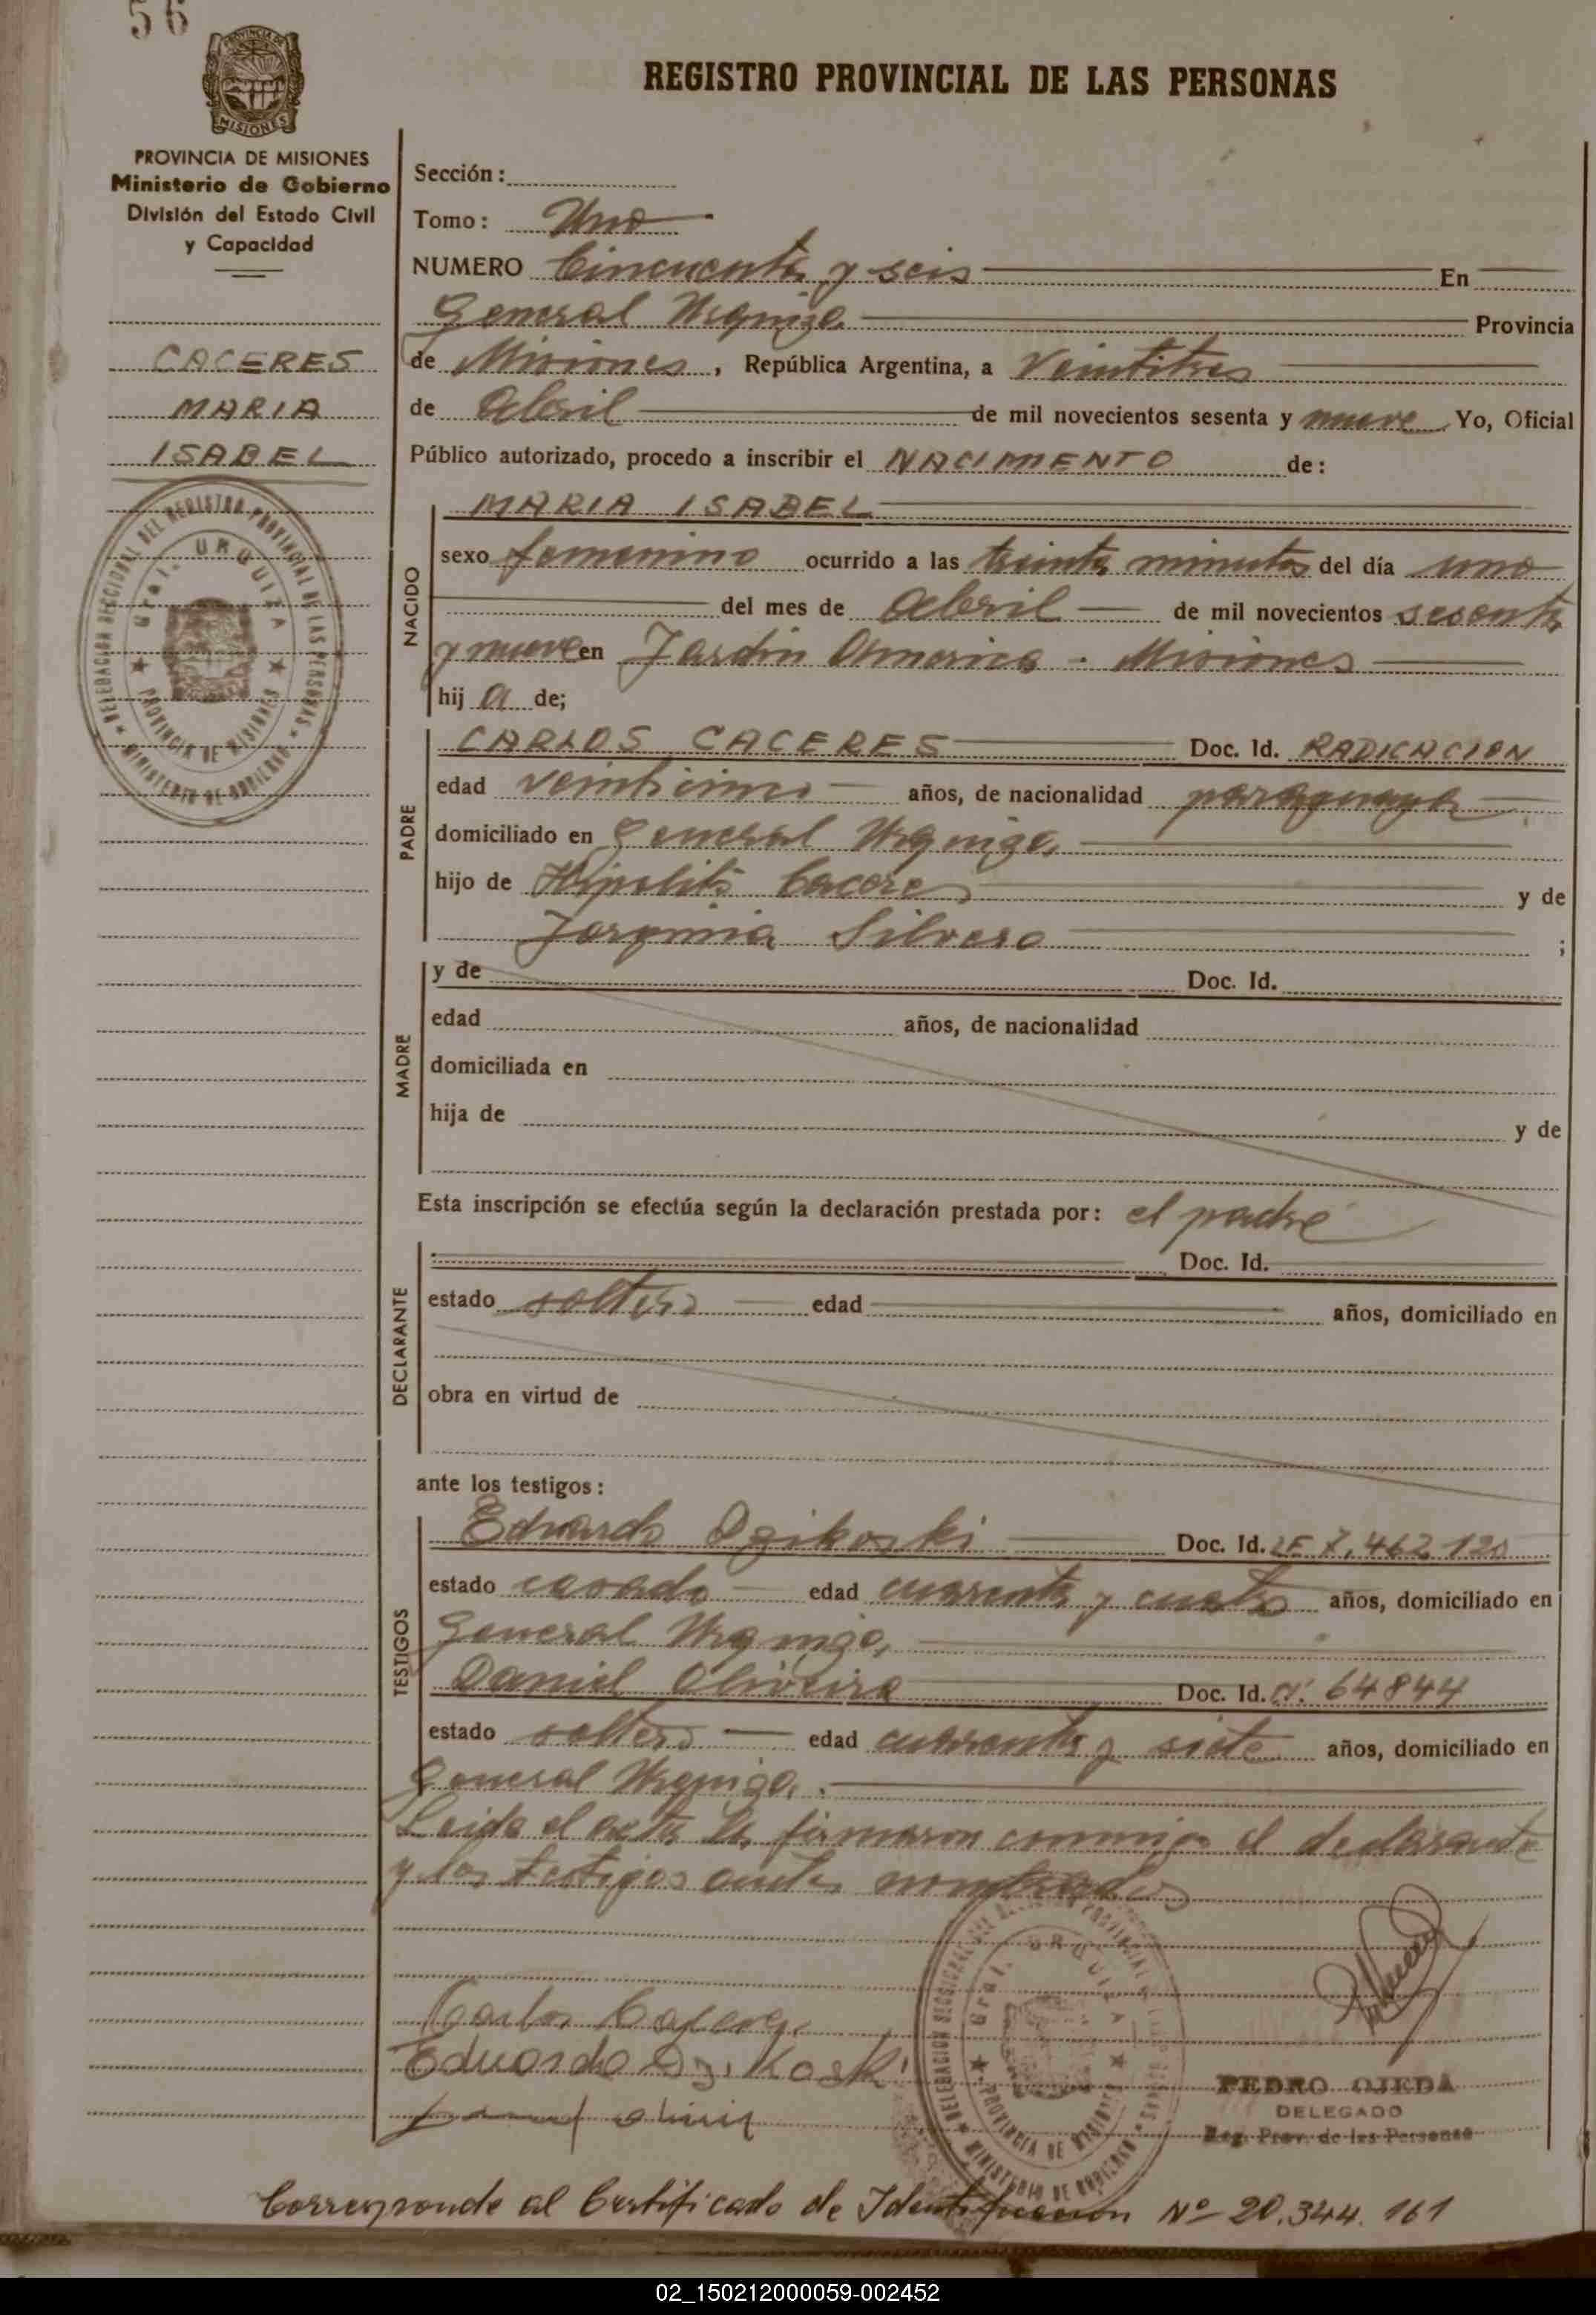 56
PROVINCIA DE MISIONES
Ministerio de Gobierno
División del Estado Civil
y Capacidad
CACERES
MARIA
ISABEL
DELEGACION SECCIONAL DEL REGISTRO PROVINCIAL DE LAS PERSONAS
Gral. URQUIZA
PROVINCIA DE MISIONES
MINISTERIO DE GOBIERNO
REGISTRO PROVINCIAL DE LAS PERSONAS
Sección:
Tomo: Uno
NUMERO Cincuenta y seis En
General Urquiza Provincia
de Misiones, República Argentina, a Veintitres
de Abril de mil novecientos sesenta y nueve Yo, Oficial
Público autorizado, procedo a inscribir el NACIMIENTO de:
MARIA ISABEL
NACIDO
sexo femenino ocurrido a las treinta minutos del día uno
del mes de Abril de mil novecientos sesenta
y nueve en Jardin America - Misiones
hij a de;
PADRE
CARLOS CACERES Doc. Id. RADICACION
edad veinticinco años, de nacionalidad paraguaya
domiciliado en General Urquiza
hijo de Hipolito Caceres y de
Silvero ;
MADRE
y de Doc. Id.
edad años, de nacionalidad
domiciliada en
hija de y de
Esta inscripción se efectúa según la declaración prestada por: el padre
DECLARANTE
Doc. Id.
estado soltero edad años, domiciliado en
obra en virtud de
ante los testigos:
TESTIGOS
Eduardo Dzikoski Doc. Id. LE 7.462.120
estado casado edad cuarenta y cuatro años, domiciliado en
General Urquiza,
Daniel Oliveira Doc. Id. CI. 64844
estado soltero edad cuarenta y siete años, domiciliado en
General Urquiza.
Leida el acta la firmaron conmigo el declarante
y los testigos antes nombrados
Carlos
Eduardo Dzikoski
DELEGACION SECCIONAL DEL REGISTRO PROVINCIAL DE LAS PERSONAS
Gral. URQUIZA
PROVINCIA DE MISIONES
MINISTERIO DE GOBIERNO
PEDRO OJEDA
DELEGADO
Reg. Prov. de las Personas
Corresponde al Certificado de Identificación Nº 20.344.161
02_150212000059-002452